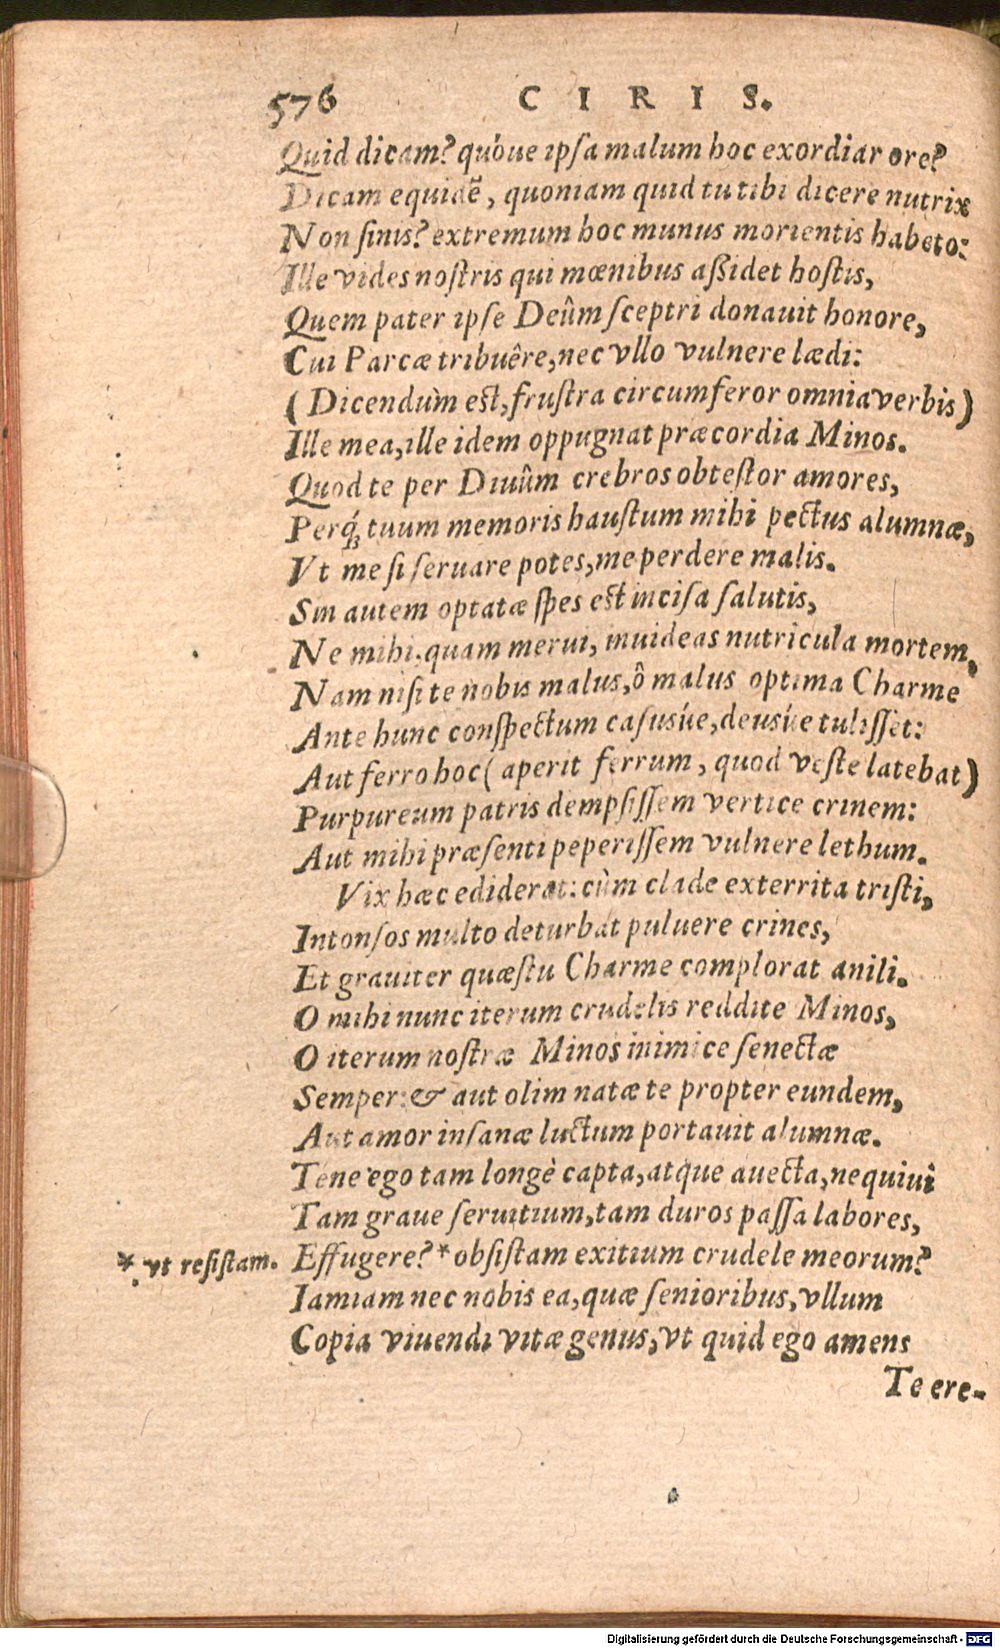 576 CIRIS.
Quid dicam? quóue ipſa malum hoc exordiar ore?
Dicam equidẽ, quoniam quid tu tibi dicere nutrix
Non ſinis? extremum hoc munus morientis habeto:
Ille vides noſtris qui mœnibus aßidet hoſtis,
Quem pater ipſe Deûm ſceptri donauit honore,
Cui Parcæ tribuêre, nec vllo vulnere lædi:
(Dicendùm est, fruſtra circumferor omnia verbis)
Ille mea, ille idem oppugnat præcordia Minos.
Quod te per Diuûm crebros obteſtor amores,
Perq́; tuum memoris hauſtum mihi pectus alumnæ,
Vt me ſi ſeruare potes, me perdere malis.
Sin autem optatæ ſpes est inciſa ſalutis,
Ne mihi, quam merui, inuideas nutricula mortem,
Nam niſi te nobis malus, ô malus optima Charme
Ante hunc conſpectum caſusúe, deusúe tuliſſet:
Aut ferro hoc (aperit ferrum, quod veſte latebat)
Purpureum patris dempſiſſem vertice crinem:
Aut mihi præſenti peperiſſem vulnere lethum.
Vix hæc ediderat: cùm clade exterrita triſti,
Intonſos multo deturbat puluere crines,
Et grauiter quæſtu Charme complorat anili.
O mihi nunc iterum crudelis reddite Minos,
O iterum noſtræ Minos inimice ſenectæ
Semper: & aut olim natæ te propter eundem,
Aut amor inſanæ luctum portauit alumnæ.
Tene ego tam longè capta, atque auecta, nequiui
Tam graue ſeruitium, tam duros paſſa labores,
Effugere? * obſiſtam exitium crudele meorum?
* vt reſiſtam.
Iamiam nec nobis ea, quæ ſenioribus, vllum
Copia viuendi vitæ genus, vt quid ego amens
Te ere-
Digitalisierung gefördert durch die Deutsche Forschungsgemeinschaft - DFG